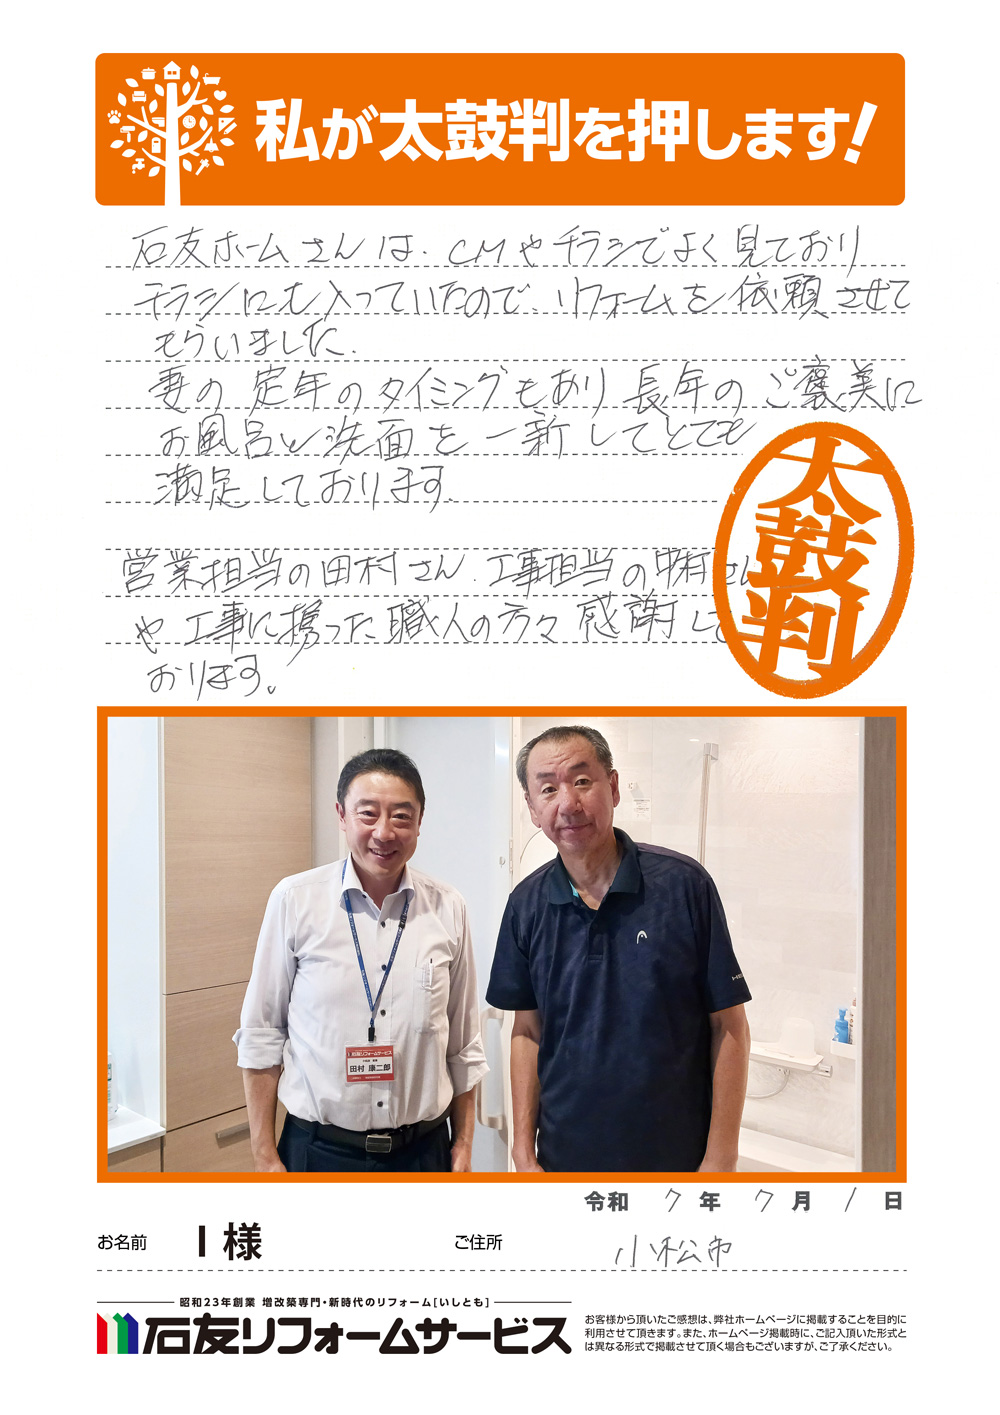 私が太鼓判を押します!
石友ホームさんは、CMやチラシでよく見ており
チラシにも入っていたので、リフォームを依頼させて
もらいました。
妻の定年のタイミングもあり長年のご褒美に
お風呂と洗面を一新してとても
満足しております。
営業担当の田村さん、工事担当の中村さん
や工事に携った職人の方々感謝して
おります。
太鼓判
石友リフォームサービス
田村 康二郎
令和 7 年 7 月 1 日
お名前 I 様 ご住所 小松市
昭和23年創業 増改築専門・新時代のリフォーム[いしとも]
石友リフォームサービス
お客様から頂いたご感想は、弊社ホームページに掲載することを目的に
利用させて頂きます。また、ホームページ掲載時に、ご記入頂いた形式と
は異なる形式で掲載させて頂く場合もございますが、ご了承ください。